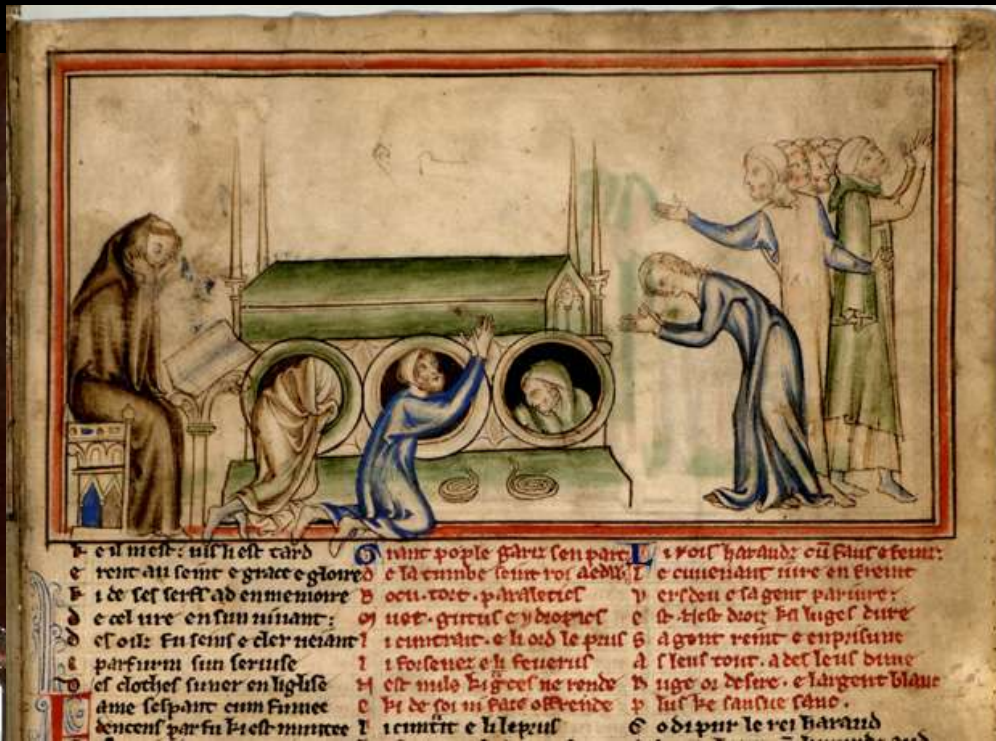 k e il ni est: vis li est tard
e rent au seint e grace e gloire
k i de ses serfs ad en memoire
d e cel ure en sun vivant
d es oilz fu seins e cler veiant
e parfurni sun servise
D es clothes suner en liglise
L ame sespant cum fumee
dencens par fu ki est muntee
G rant pople gariz sen part
d e la tumbe seint roi aedw
B ocu. tort. paraletics
M uet. gutus e ydropics
l i cuntrait. e li ord le prus
l i forsenez e li feverus
N est nuls ki gces ne rende
e ki de soi ni face offrende
l i cuntit e li leprus
L i rois haraudz cū faus e feinz:
l e cuvenant jure en freint
V ers deu e sa gent parjure:
e st. nest droiz ke luges dure
S a gent reint e enprisune
A s leus tout. a des leus dune
R uge or desire. e largent blanc
p lus ke sausue sanc.
C o di pur le rei haraud